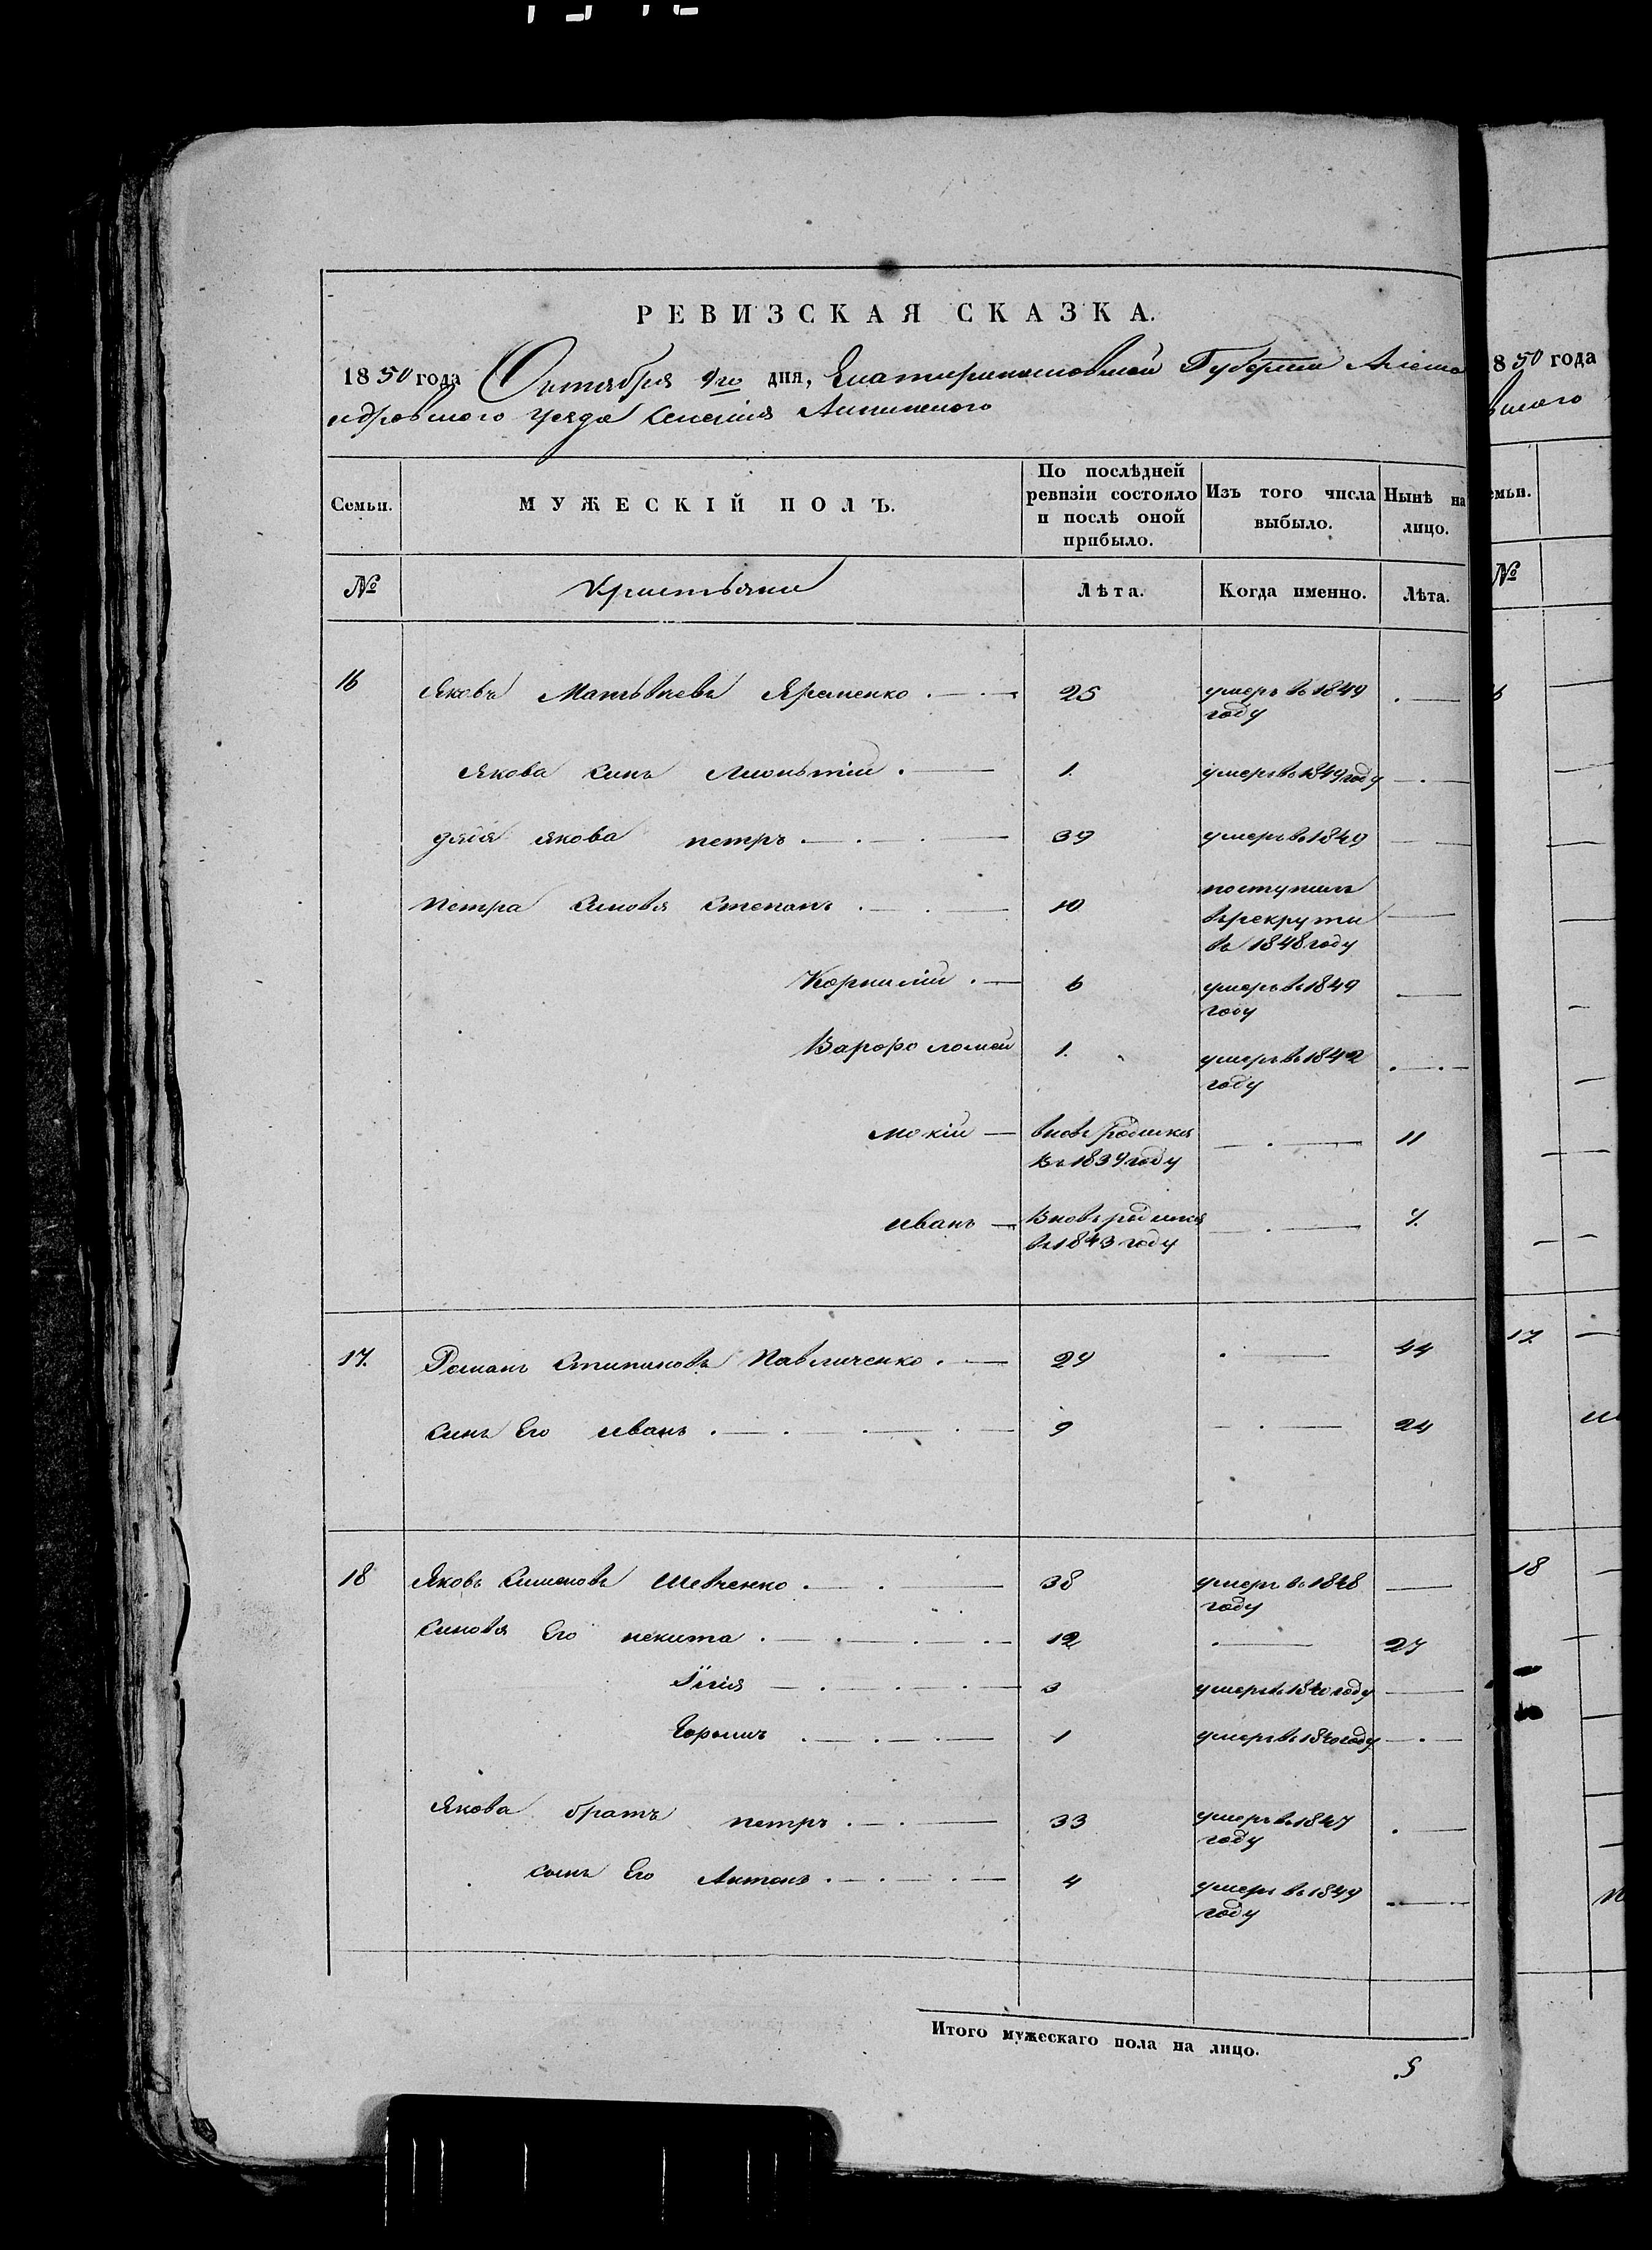 РЕВИЗСКАЯ СКАЗКА.
1850 года Октября 9го дня, Екатеринославской Губернии Алекса
ндровского уезда Селения
Семьи.
МУЖЕСКІЙ ПОЛЪ.
По послѣдней ревизіи состояло и послѣ оной прибыло.
Изъ того числа выбыло.
Нынѣ на лицо.
№
Крестьяне
Лѣта.
Когда именно.
Лѣта.
16 Яковъ Матвѣевъ Яременко 25 умеръ въ 1849
году
Якова синъ Леонътій 1. умеръ въ 1849 году
дядя якова петръ 39 умеръ въ 1849
Петра синовя Степанъ 10 поступилъ
врекруты
въ 1848 году
Корнилій 6 умеръ въ 1849
году
Варфоломей 1. умеръ въ 1842
году
мокій вновь родился 11
въ 1839 году
иванъ Вновь родился 7.
въ 1843 году
17. Романъ Стипановъ Павличенко 29 44
синъ Его иванъ 9 24
18 Яковъ Симоновъ Шевченко 38 умеръ въ 1848
году
синовя Его никита 12 27
Їлія 3 умеръ въ 1840 году
1 умеръ въ 1840 году
Якова братъ петръ 33 умеръ въ 1847
году
сынъ Его Антонъ 4 умеръ въ 1849
году
Итого мужескаго пола на лицо.
.5
1850 года
№
17.
18